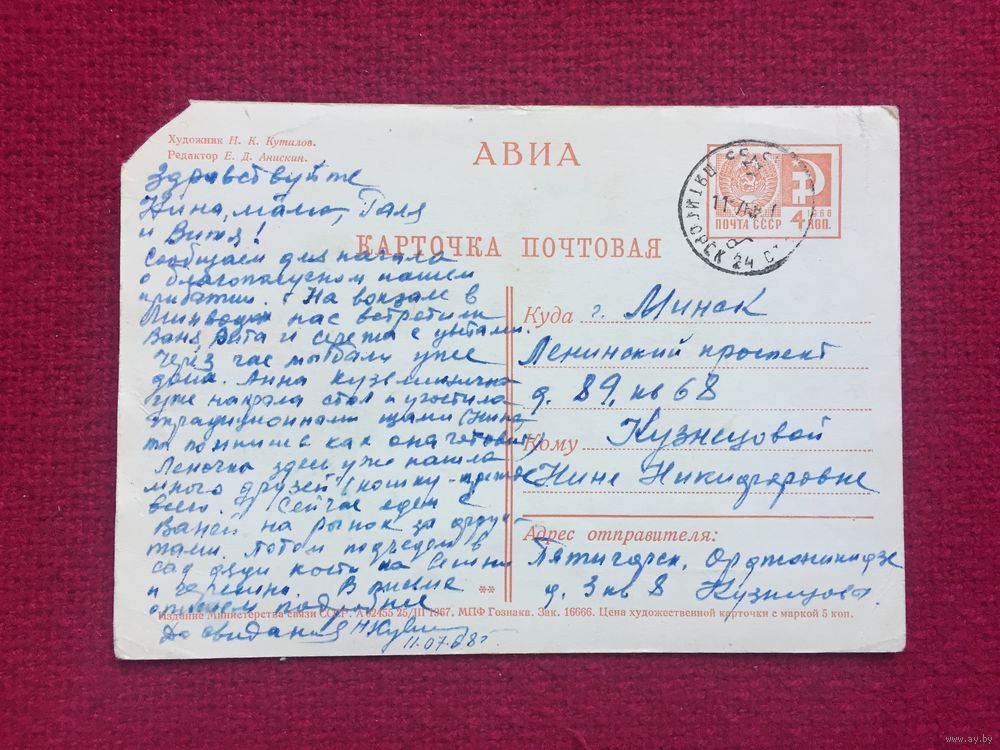 Художник Н. К. Кутилов.
Редактор Е. Д. Анискин.
АВИА
КАРТОЧКА ПОЧТОВАЯ
ПОЧТА СССР
1966
4 КОП.
ПЯТИГОРСК 24
Здравствуйте
Нина, мама, Галя
и Витя!
Сообщаем для начала
о благополучном нашем
прибытии. На вокзале в
Минводах нас встретили
Ваня, Рита и Сережа с цветами.
Через час мы были уже
дома. Анна Кузьминична
уже накрала стол и угостила
традиционными щами (Нина,
ты помнишь как она готовит)
Леночка здесь уже нашла
много друзей (кошку - прежде
всего.) Сейчас едем с
Ваней на рынок за фрук-
тами. Потом подъедем в
сад дяди Кости за
и черешни. В письме
опишем подробнее
До свидания
11.07.68г
Куда г. Минск
Ленинский проспект
д. 89, кв 68
Кому Кузнецовой
Нине Никифоровне
Адрес отправителя:
Пятигорск, Орджоникидзе
д. 3 кв 8 Кузнецова.
**
Издание Министерства связи СССР. А 02455 25/III 1967. МПФ Гознака. Зак. 16666. Цена художественной карточки с маркой 5 коп.
www.ay.by